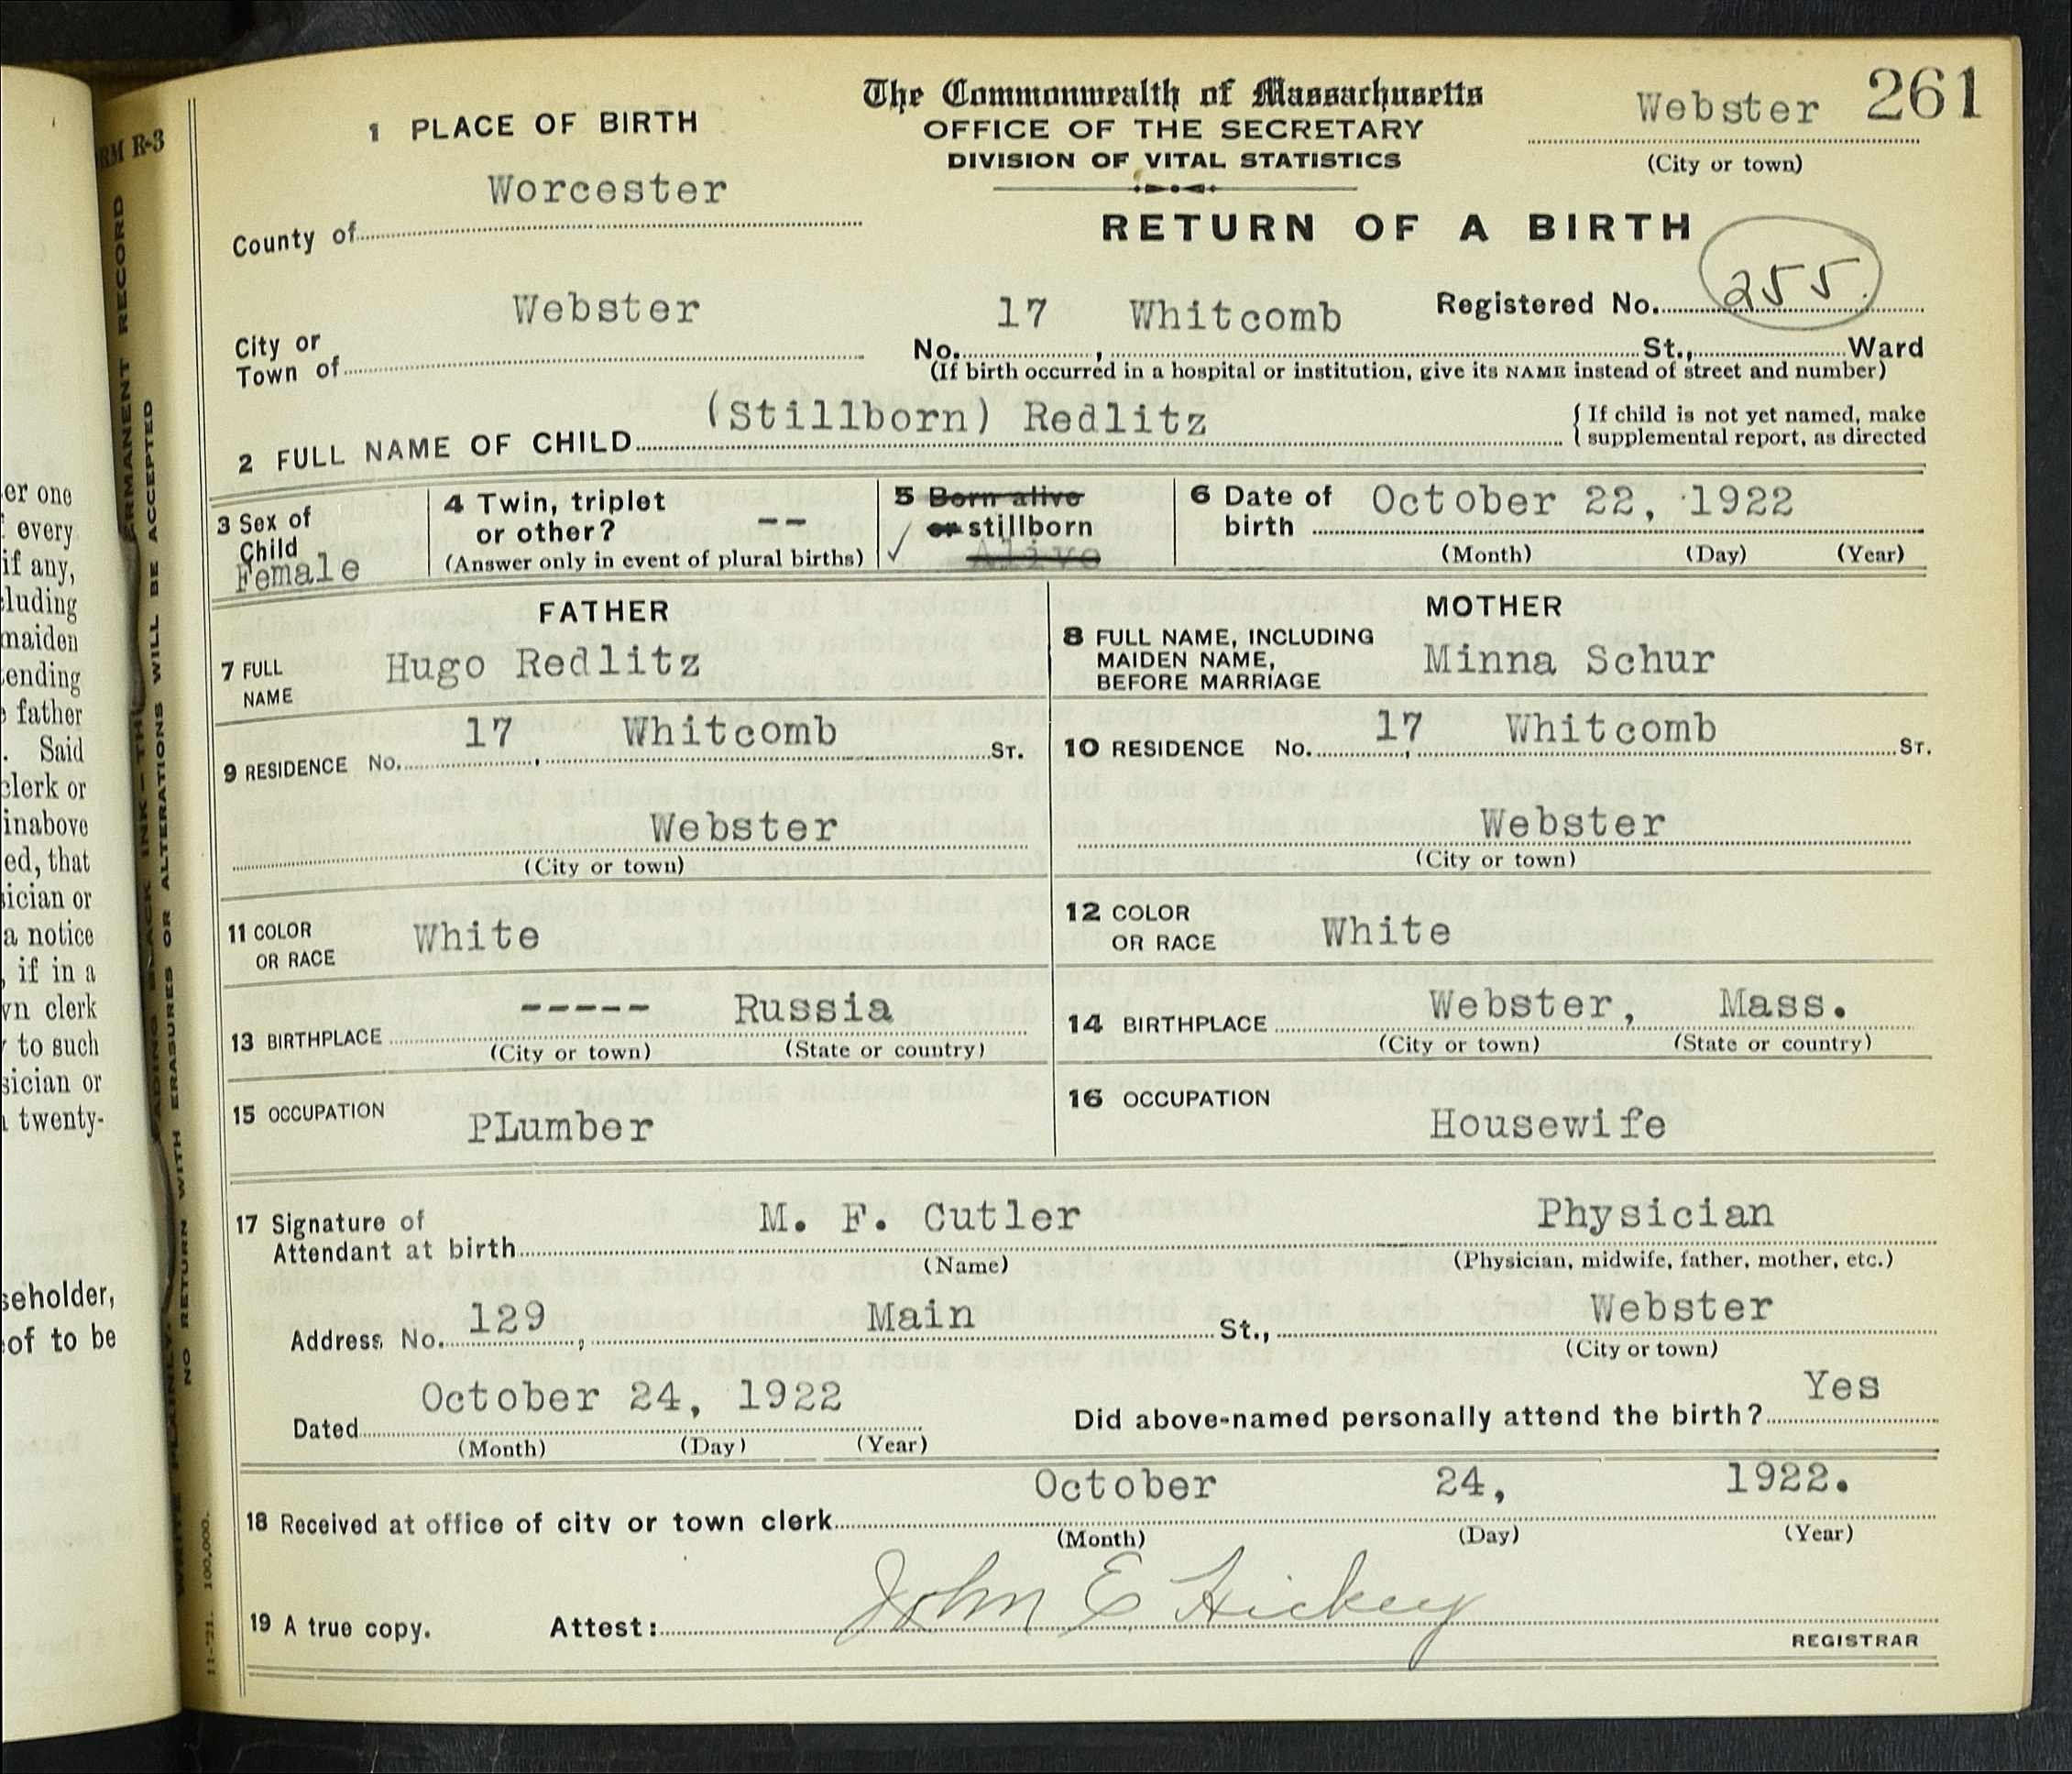 The Commonwealth of Massachusetts
OFFICE OF THE SECRETARY
DIVISION OF VITAL STATISTICS
Webster 261
(City or town)
RM R-3
1 PLACE OF BIRTH
Worcester
County of
RETURN OF A BIRTH
Webster
City or
Town of
Registered No. 255.
17 Whitcomb
No. , St., Ward
(If birth occurred in a hospital or institution, give its NAME instead of street and number)
2 FULL NAME OF CHILD (Stillborn) Redlitz
{ If child is not yet named, make
supplemental report, as directed
3 Sex of
Child
Female
4 Twin, triplet
or other? --
(Answer only in event of plural births)
5 Born alive
or stillborn
✓ Alive
6 Date of
birth October 22, 1922
(Month) (Day) (Year)
FATHER
7 FULL
NAME Hugo Redlitz
9 RESIDENCE No. 17 , Whitcomb ST.
Webster
(City or town)
11 COLOR
OR RACE White
13 BIRTHPLACE ----- Russia
(City or town) (State or country)
15 OCCUPATION
PLumber
MOTHER
8 FULL NAME, INCLUDING
MAIDEN NAME,
BEFORE MARRIAGE Minna Schur
10 RESIDENCE No. 17 , Whitcomb ST.
Webster
(City or town)
12 COLOR
OR RACE White
14 BIRTHPLACE Webster, Mass.
(City or town) (State or country)
16 OCCUPATION
Housewife
17 Signature of
Attendant at birth M. F. Cutler Physician
(Name) (Physician, midwife, father, mother, etc.)
Address No. 129 , Main St., Webster
(City or town)
Dated October 24, 1922
(Month) (Day) (Year)
Did above-named personally attend the birth? Yes
18 Received at office of city or town clerk October 24, 1922.
(Month) (Day) (Year)
19 A true copy. Attest: John E Hickey
REGISTRAR
11-'21. 100,000.
NO RETURN WITH ERASURES OR ALTERATIONS WILL BE ACCEPTED
er one
every
if any,
cluding
maiden
tending
father
. Said
clerk or
inabove
ed, that
sician or
a notice
, if in a
vn clerk
to such
sician or
twenty-
seholder,
eof to be